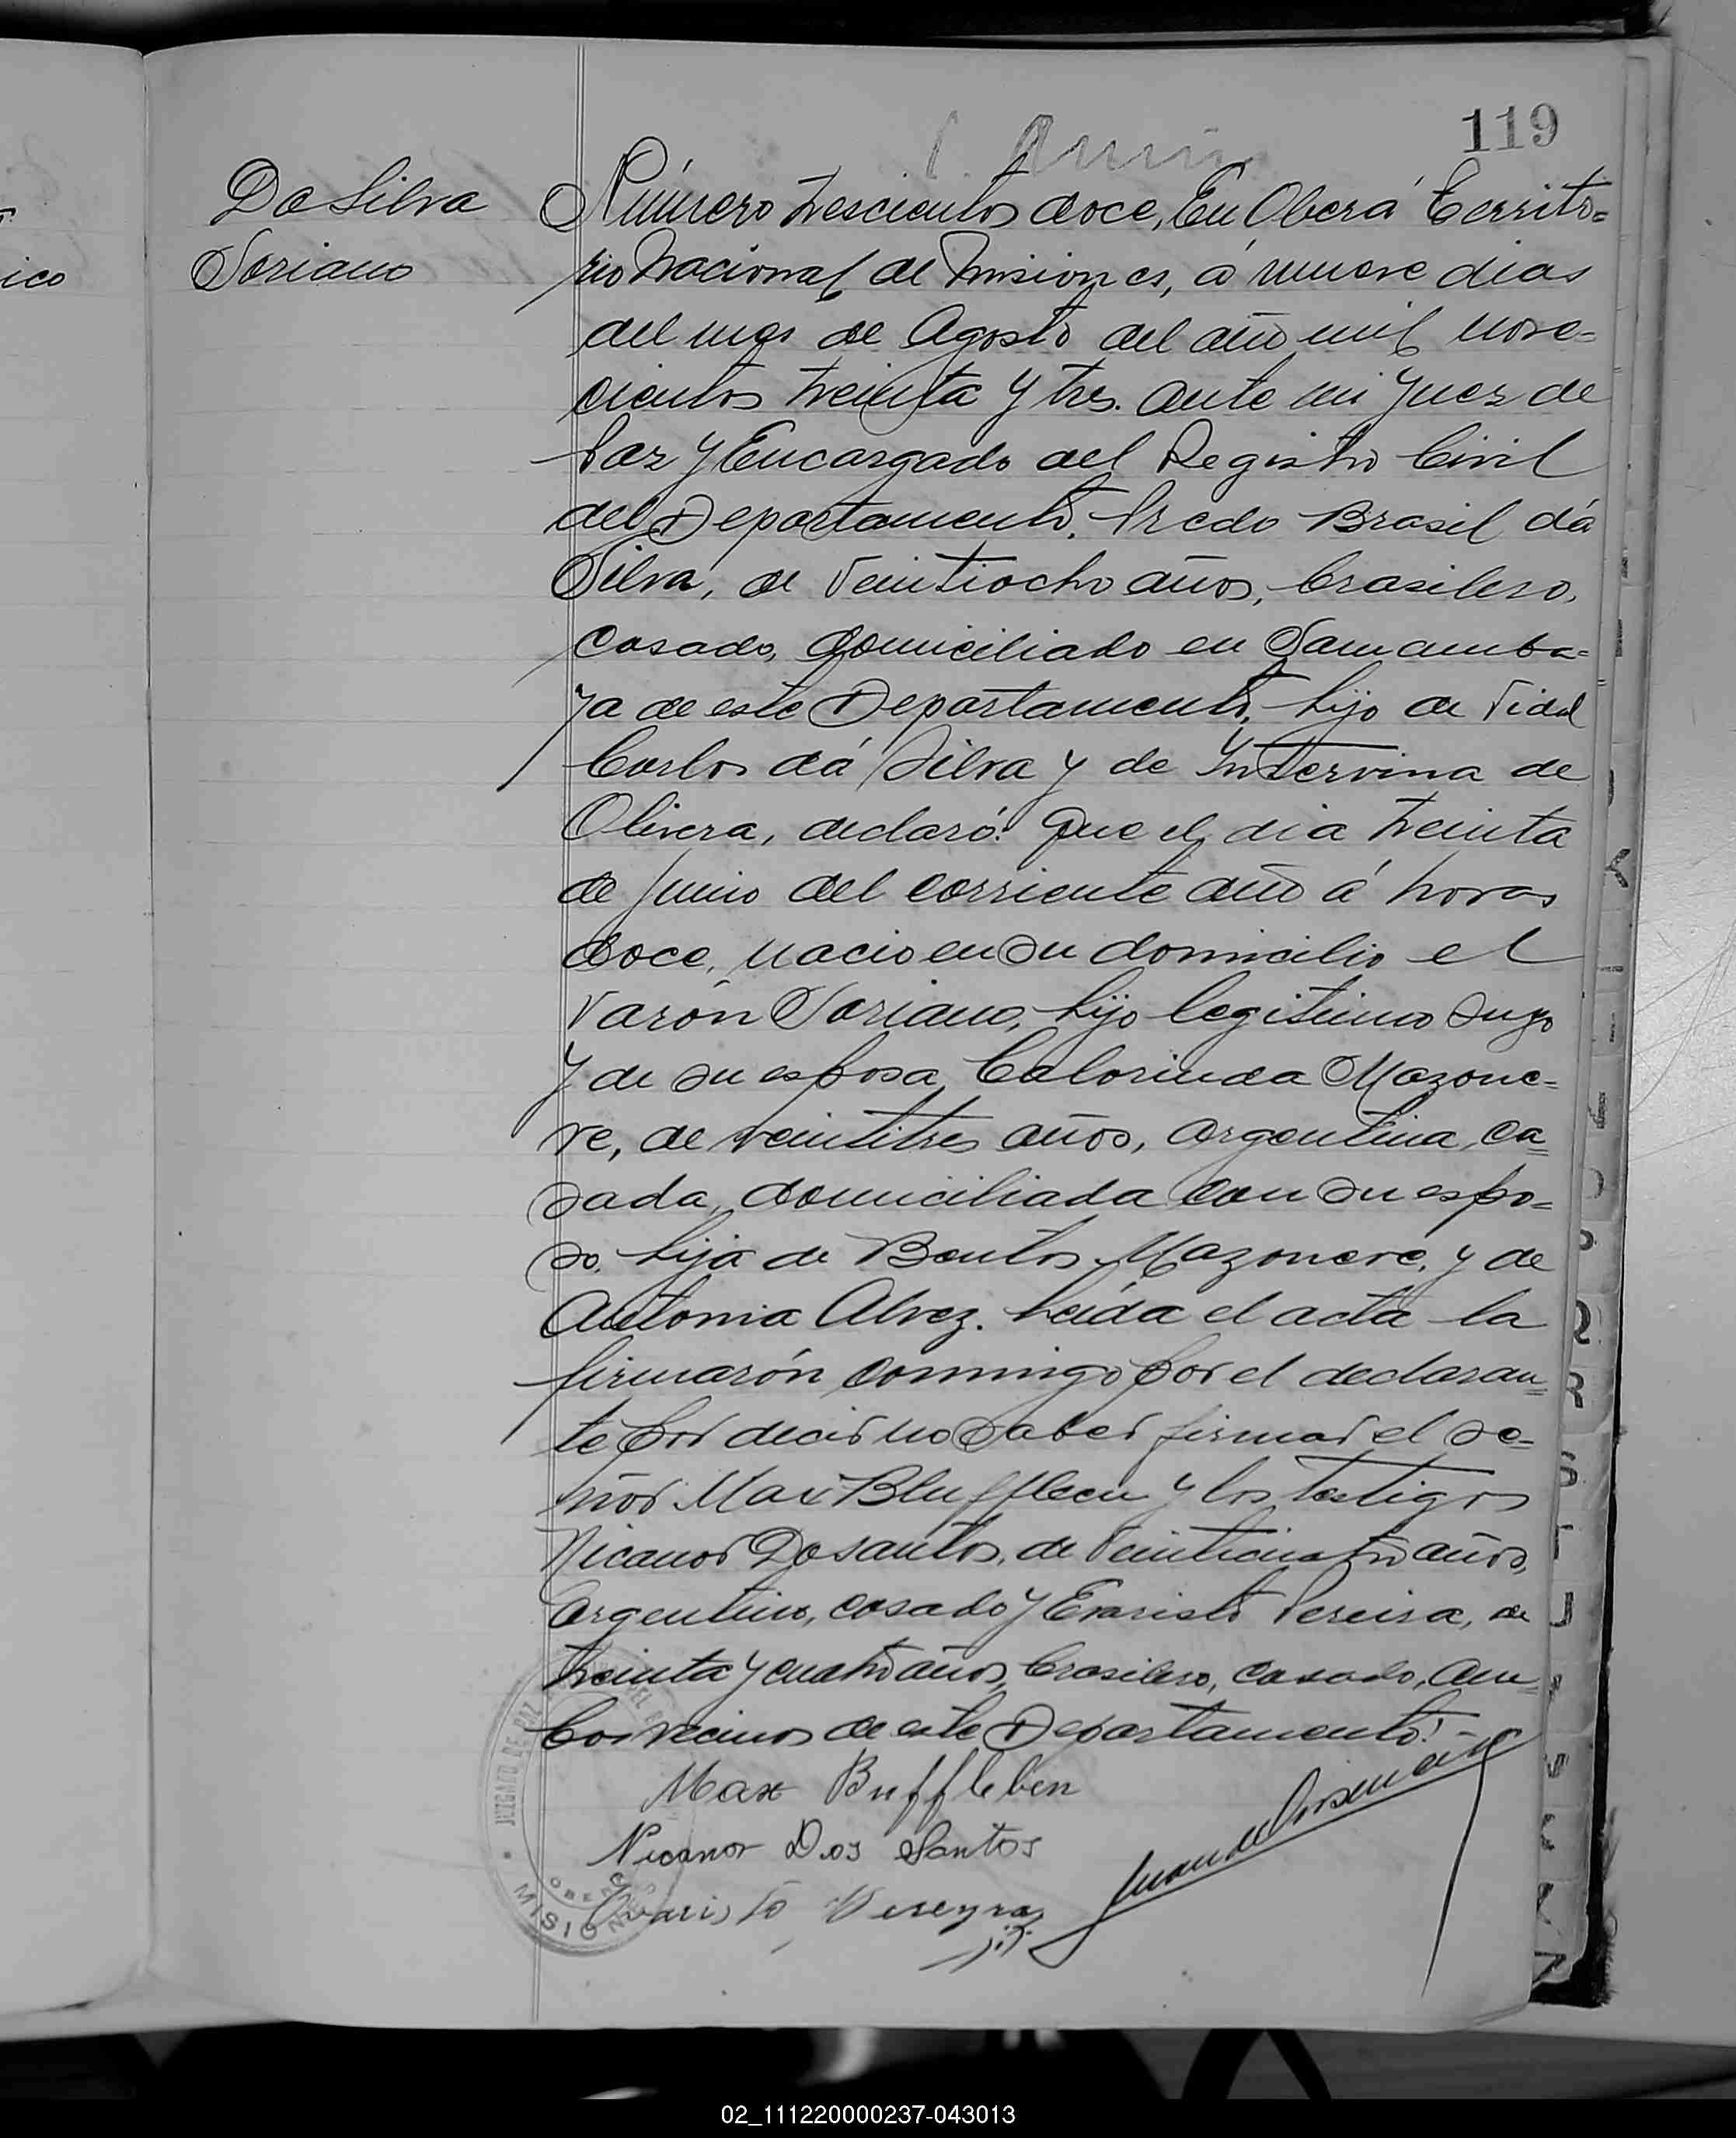 119
Da Silva
Soriano
ico
Número trescientos doce, En Oberá Territo=
rio Nacional de Misiones, á nueve dias
del mes de Agosto del año mil nove=
cientos treinta y tres. ante mi Juez de
Paz y Encargado del Registro Civil
del Departamento, Predo Brasil dá
Silva, de veintiocho años, brasilero,
casado, domiciliado en Samamba=
ya de este Departamento, hijo de Vidal
Carlos dá Silva y de Intervina de
Olivera, declaró: Que el dia treinta
de Junio del corriente año á horas
doce, nacio en su domicilio el
varón Soriano, hijo legitimo suyo
y de su esposa Calorinda Mazone=
re, de veintitres años, argentina, ca=
sada, domiciliada con su espo=
so, hija de Bentos Mazonere, y de
Antonia Alvez. Leida el acta la
firmarón conmigo por el declaran=
te por decir no saber firmar el se=
ñor Max Bluffleen y los testigos
Nicanor Dosantos, de veinticuatro años,
argentino, casado y Evaristo Pereira, de
treinta y cuatro años, brasilero, casado, am=
bos vecinos de este Departamento.-
Max Buffleben
Nicanor Dos Santos
Evaristo Pereyra
JUZGADO DE PAZ
OBERÁ
MISIONES
Q
R
S
T
02_111220000237-043013